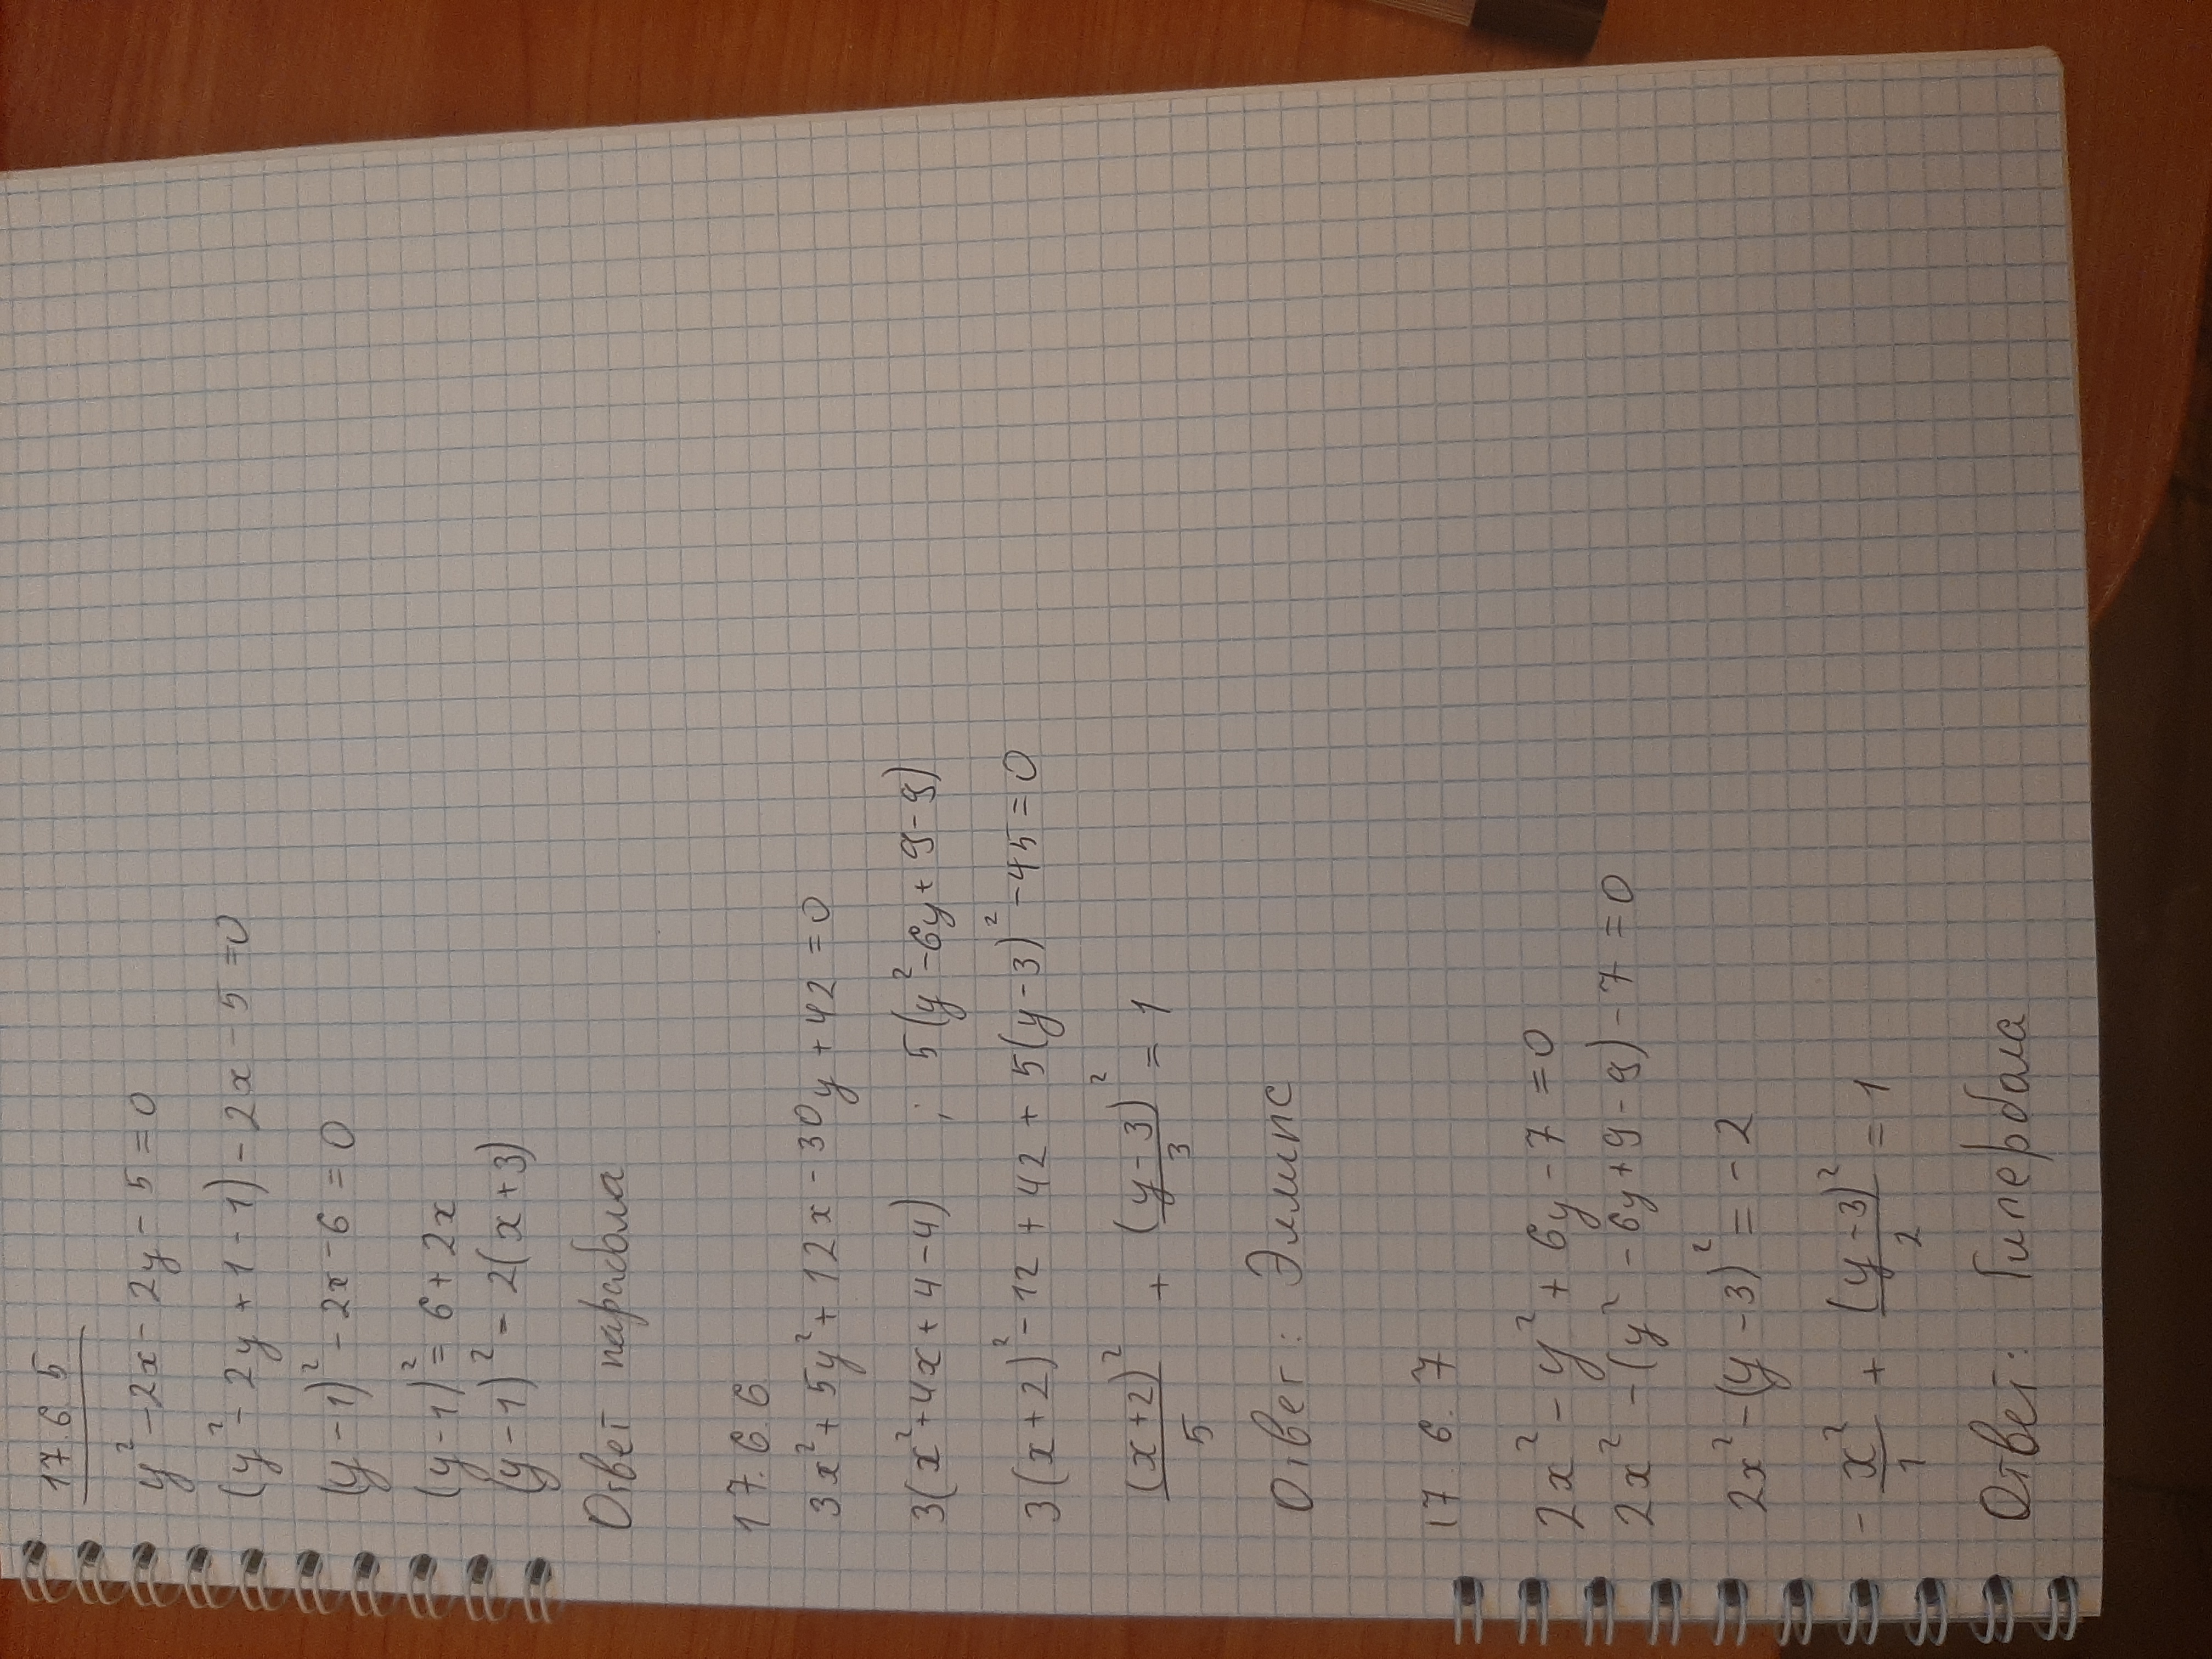 17.6.5
y² - 2x - 2y - 5 = 0
(y² - 2y + 1 - 1) - 2x - 5 = 0
(y - 1)² - 2x - 6 = 0
(y - 1)² = 6 + 2x
(y - 1)² = 2(x + 3)
Ответ парабола
17.6.6
3x² + 5y² + 12x - 30y + 42 = 0
3(x² + 4x + 4 - 4) ; 5(y² - 6y + 9 - 9)
3(x + 2)² - 12 + 42 + 5(y - 3)² - 45 = 0
(x + 2)²/5 + (y - 3)²/3 = 1
Ответ: Эллипс
17.6.7
2x² - y² + 6y - 7 = 0
2x² - (y² - 6y + 9 - 9) - 7 = 0
2x² - (y - 3)² = -2
- x²/1 + (y - 3)²/2 = 1
Ответ: Гипербола